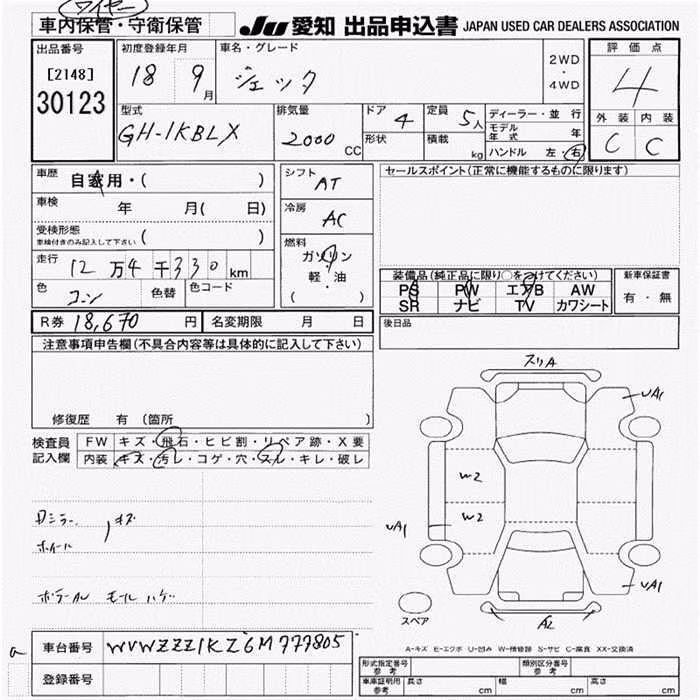 ワイヤー
車内保管・守衛保管
JU 愛知 出品申込書 JAPAN USED CAR DEALERS ASSOCIATION
出品番号
[2148]
30123
初度登録年月
18 9月
車名・グレード
ジェッタ
2WD
・
4WD
評価点
4
外装 内装
C C
型式
GH-1KBLX
排気量
2000 CC
ドア 4
形状
定員 5人
積載 kg
ディーラー・並行
モデル年式 年
ハンドル 左・右
車歴
自家用・( )
車検
年 月( 日)
受検形態
車検付きのみ記入して下さい ( )
走行
12万4千330km
色
コン
色替
色コード
シフト
AT
冷房
AC
燃料
ガソリン
軽・油
( )
セールスポイント(正常に機能するものに限ります)
装備品(純正品に限り〇をつけてください)
PS PW エアB AW
SR ナビ TV カワシート
新車保証書
有・無
後日品
R券 18,670 円
名変期限 月 日
注意事項申告欄(不具合内容等は具体的に記入して下さい)
修復歴 有 (箇所 )
検査員
記入欄
FW キズ・飛石・ヒビ割・リペア跡・X要
内装 キズ・汚レ・コゲ・穴・スレ・キレ・破レ
ミラー
ホイール
キズ
モールハゲ
スリA
UA1
W2
W2
UA1
UA1
A2
スペア
A-キズ E-エクボ U-凹み W-補修跡 S-サビ C-腐食 XX-交換済
a
車台番号 WVWZZZ1KZ6M777805
登録番号
形式指定番号
参考
類別区分番号
参考
車庫証明用
参考
長さ cm 幅 cm 高さ cm